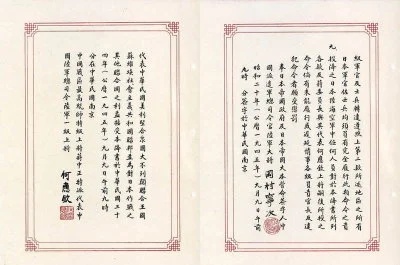 九、
級軍官及士兵轉達遵照上第二款所述地區之所有
日本軍官佐士兵均須負有完全履行此類命令之責
投降之日本陸海空軍中任何人員對於本降書所列
各款及蔣委員長與其代表何應欽上將嗣後所授之
命令倘有未能履行或遲延情事各級負責官長及違
犯命令者願受懲罰
奉日本帝國政府及日本帝國大本營命簽字人中
國派遣軍總司令官陸軍大將 岡村寧次
昭和二十年(公曆一九四五年)九月九日午前
九時 分簽字於中華民國南京
代表中華民國美利堅合眾國大不列顛聯合王國
蘇維埃社會主義共和國聯邦並為對日本作戰之
其他聯合國之利益接受本降書於中華民國三十
四年(公曆一九四五年)九月九日午前九時
分在中華民國南京
中國戰區最高統帥特級上將蔣中正特派代表中
國陸軍總司令陸軍一級上將
何應欽